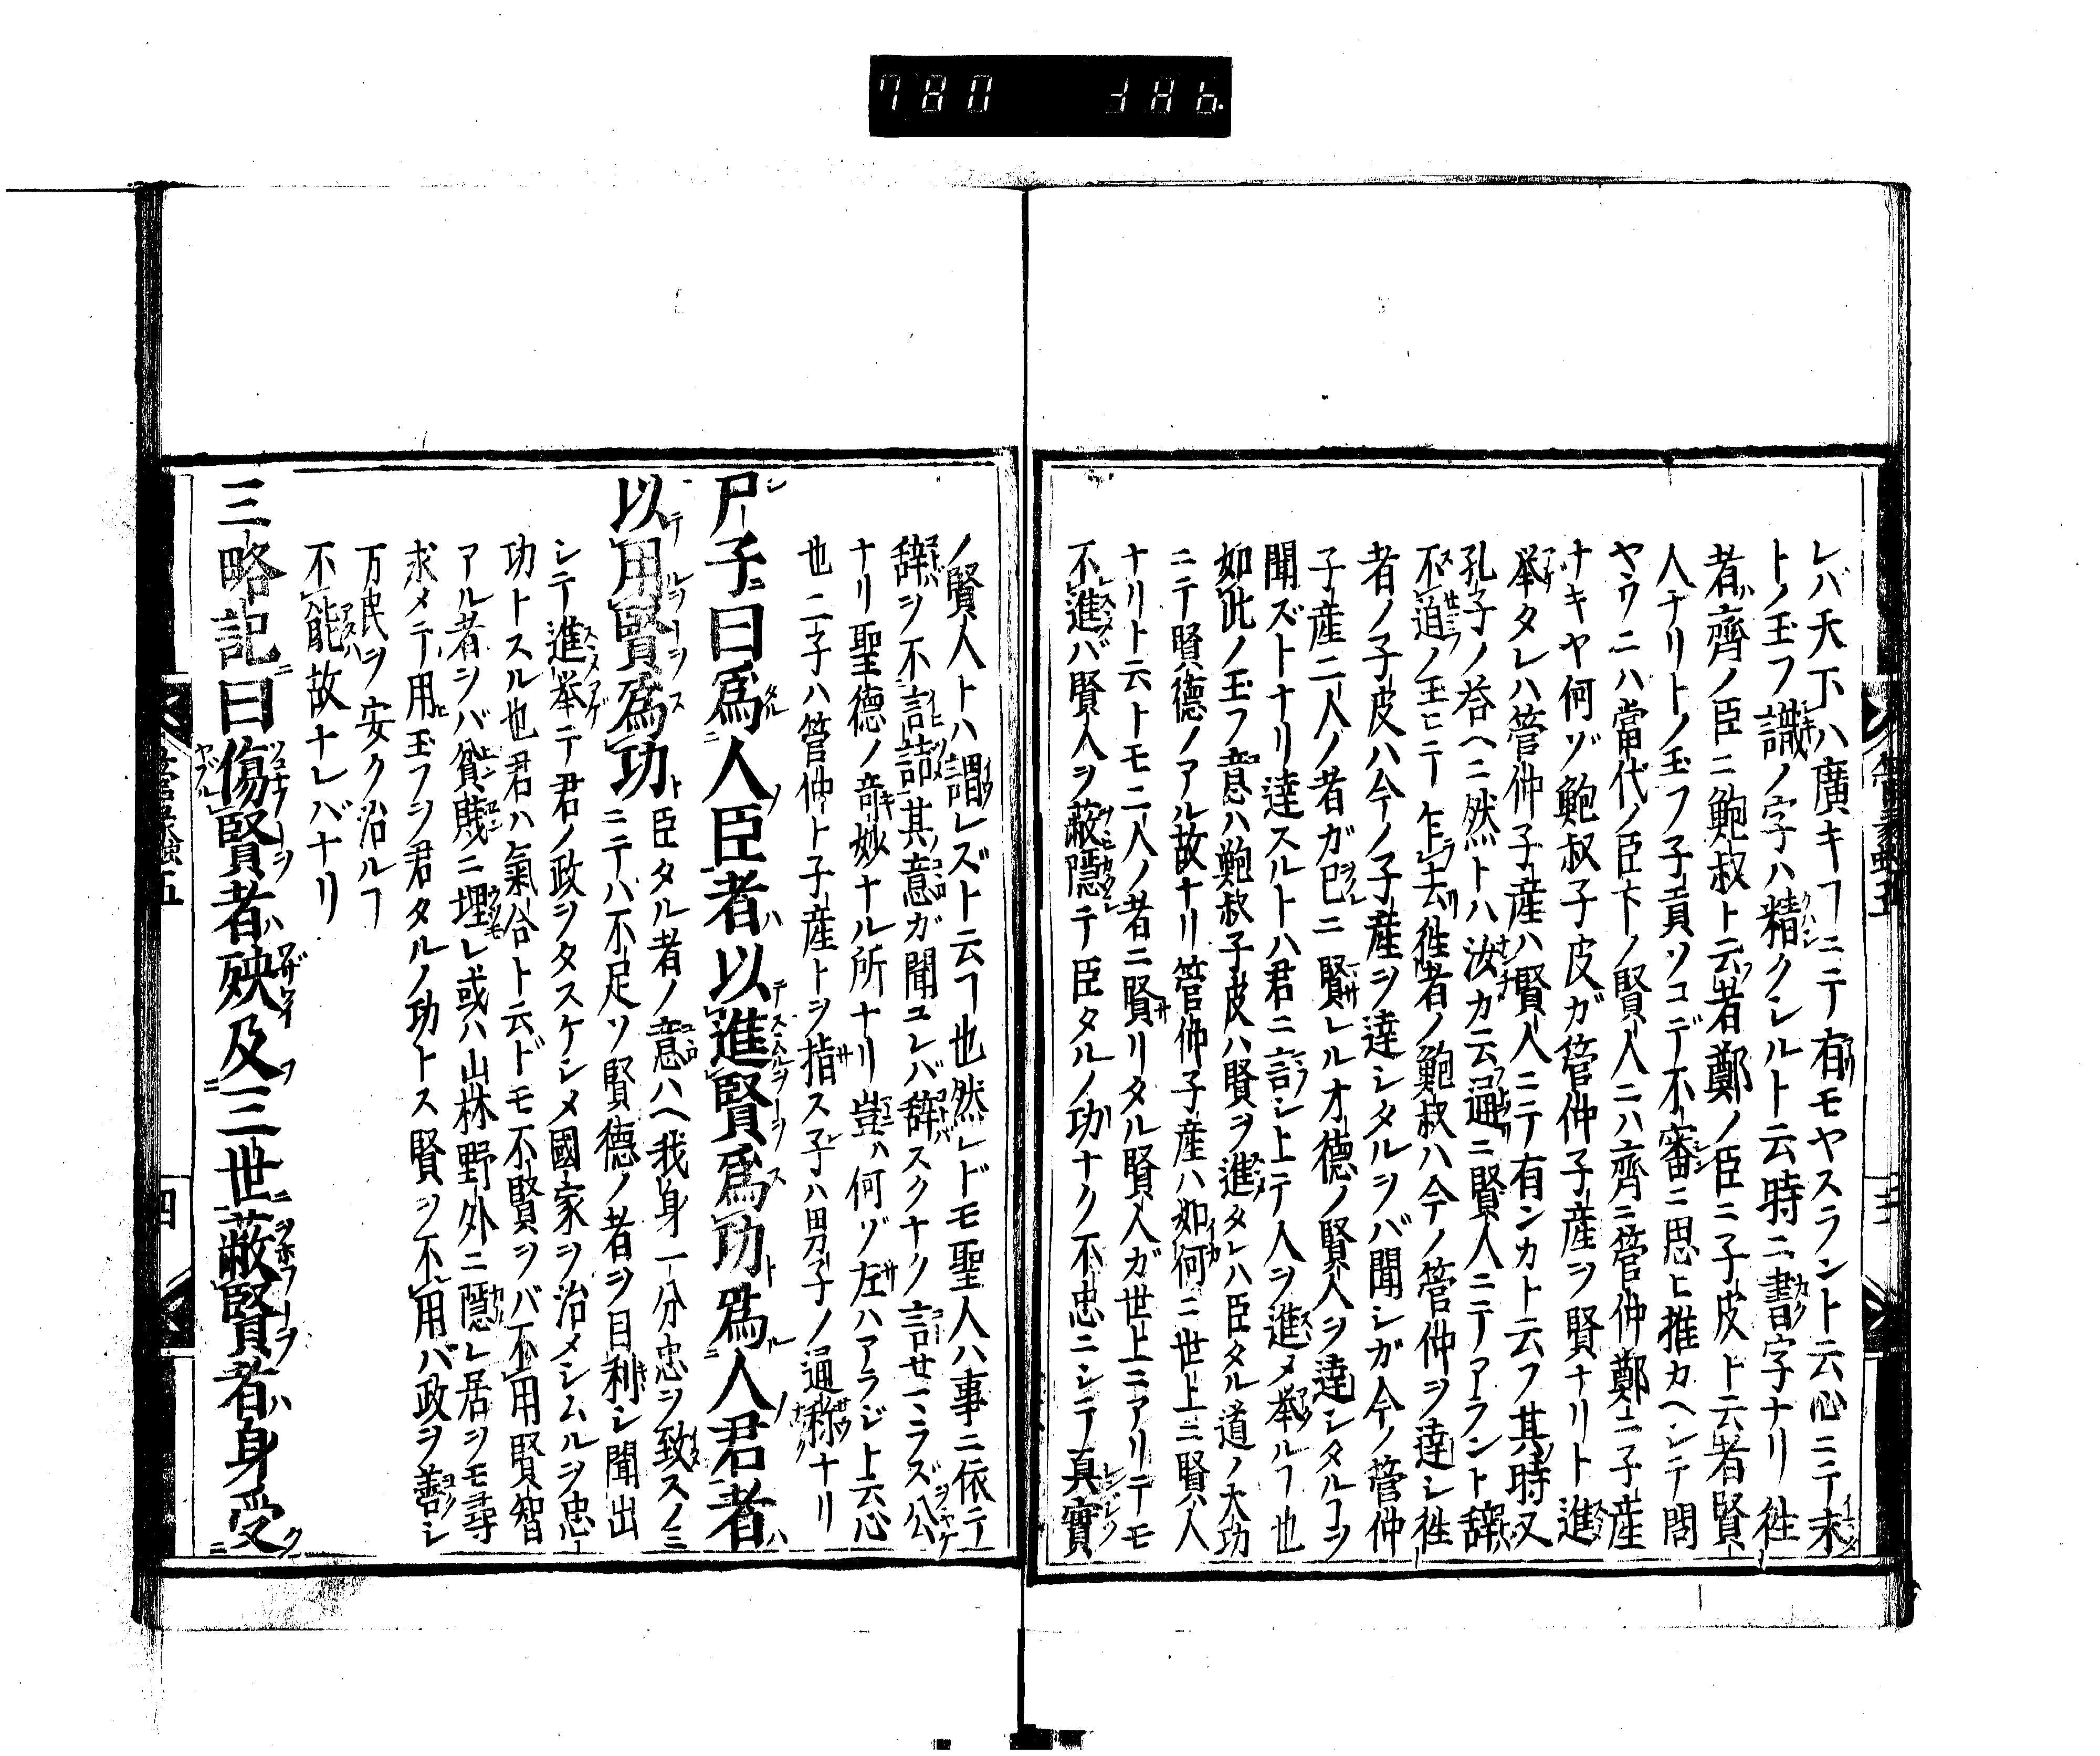 レバ天下ハ廣キヿニテ有モヤスラント云心ニテ未
トノ玉フ識ノ字ハ精クシルト云時ニ書字ナリ徃
者齊ノ臣ニ鮑叔ト云者鄭ノ臣ニ子皮ト云者賢
人ナリトノ玉フ子貢ソコデ不審ニ思ヒ推カヘシテ問
ヤウニハ當代ノ臣下ノ賢人ニハ齊ニ管仲鄭ニ子産
ナキヤ何ゾ鮑叔子皮ガ管仲子産ヲ賢ナリト進
挙タレハ管仲子産ハ賢人ニテ有ンカト云フ其時又
孔子ノ荅ヘニ然トハ汝カ云通ニ賢人ニテアラント辞
不迫ノ玉ヒテ乍去徃者ノ鮑叔ハ今ノ管仲ヲ達シ徃
者ノ子皮ハ今ノ子産ヲ達シタルヲバ聞シガ今ノ管仲
子産二人ノ者ガ已ニ賢レルオ德ノ賢人ヲ達シタルヿヲ
聞ズトナリ達スルトハ君ニ言シ上テ人ヲ進メ挙ルヿ也
如此ノ玉フ意ハ鮑叔子皮ハ賢ヲ進タレハ臣タル道ノ大功
ニテ賢德ノアル故ナリ管仲子産ハ如何ニ世上ニ賢人
ナリト云トモ二人ノ者ニ賢リタル賢人ガ世上ニアリテモ
不進バ賢人ヲ蔽隱テ臣タルノ功ナク不忠ニシテ真實
ノ賢人トハ謂レズト云ヿ也然レドモ聖人ハ事ニ依テ
辞ヲ不言詰其意ガ聞ユレバ辞スクナク言せ玉ラズ公
ナリ聖德ノ竒妙ナル所ナリ豈ハ何ゾ左ハアラジト云心
也二子ハ管仲ト子産トヲ指ス子ハ男子ノ通稱ナリ
尸子曰爲人臣者以進賢爲功爲人君者
以用賢爲功臣タル者ノ意ハヘ我身一分忠ヲ致スノミ
ニテハ不足ソ賢德ノ者ヲ目利シ聞出
シテ進挙テ君ノ政ヲタスケシメ國家ヲ治メシムルヲ忠
功トスル也君ハ氣合ト云ドモ不賢ヲバ不用賢智
アル者ヲバ貧賤ニ埋レ或ハ山林野外ニ隱レ居ヲモ尋
求メテ用玉フヲ君タルノ功トス賢ヲ不用バ政ヲ善シ
万民ヲ安ク治ルヿ
不能故ナレバナリ
三略記曰傷賢者殃及三世蔽賢者身受